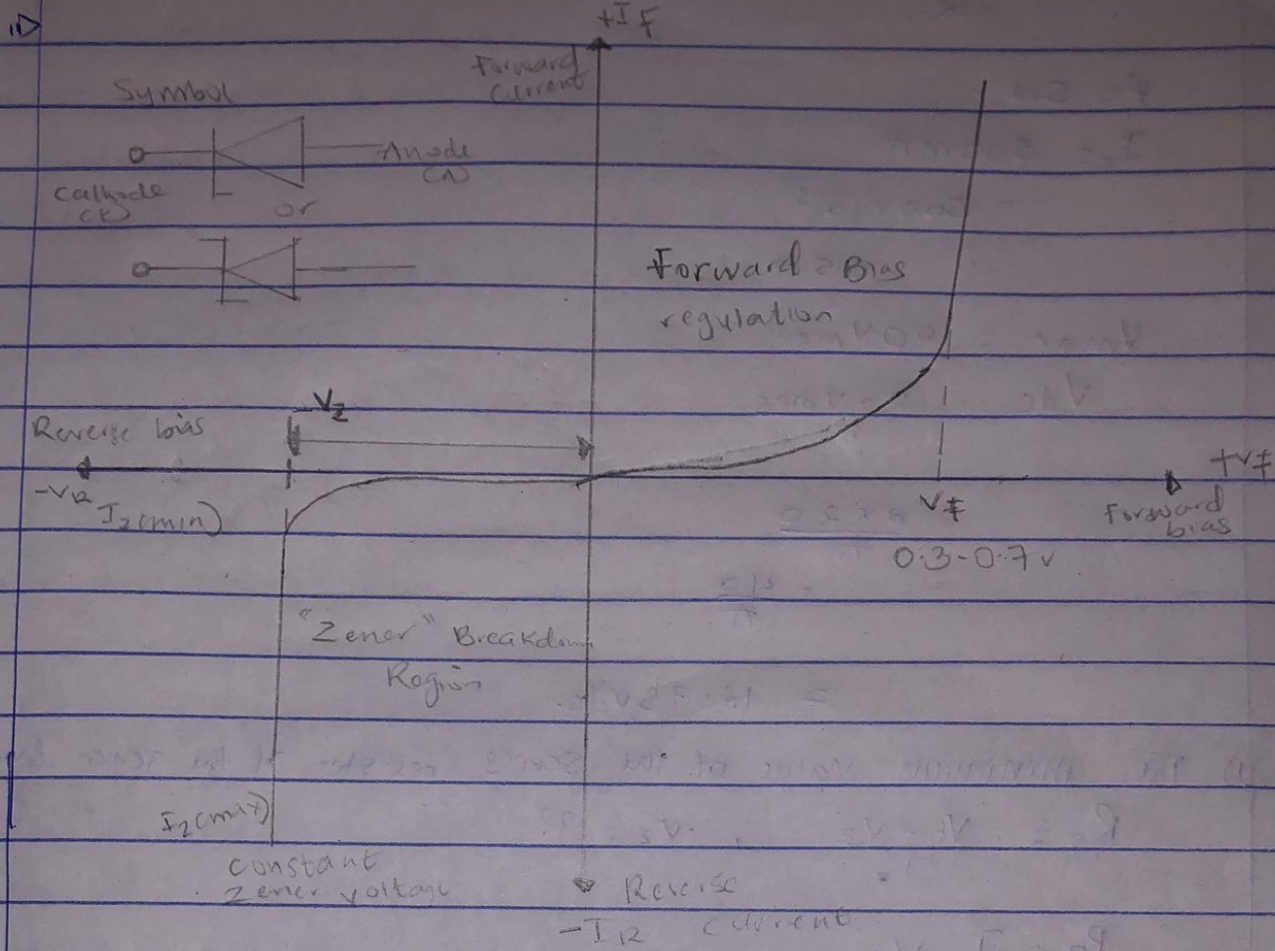 +I F
Forward
Current
Symbol
Anode
(A)
Cathode
(K)
or
Forward Bias
regulation
-Vz
Reverse bias
+VF
-VR
Iz(min)
VF
Forward
bias
0.3-0.7v
"Zener" Breakdown
Region
Iz(max)
Constant
Zener voltage
Reverse
-IR Current